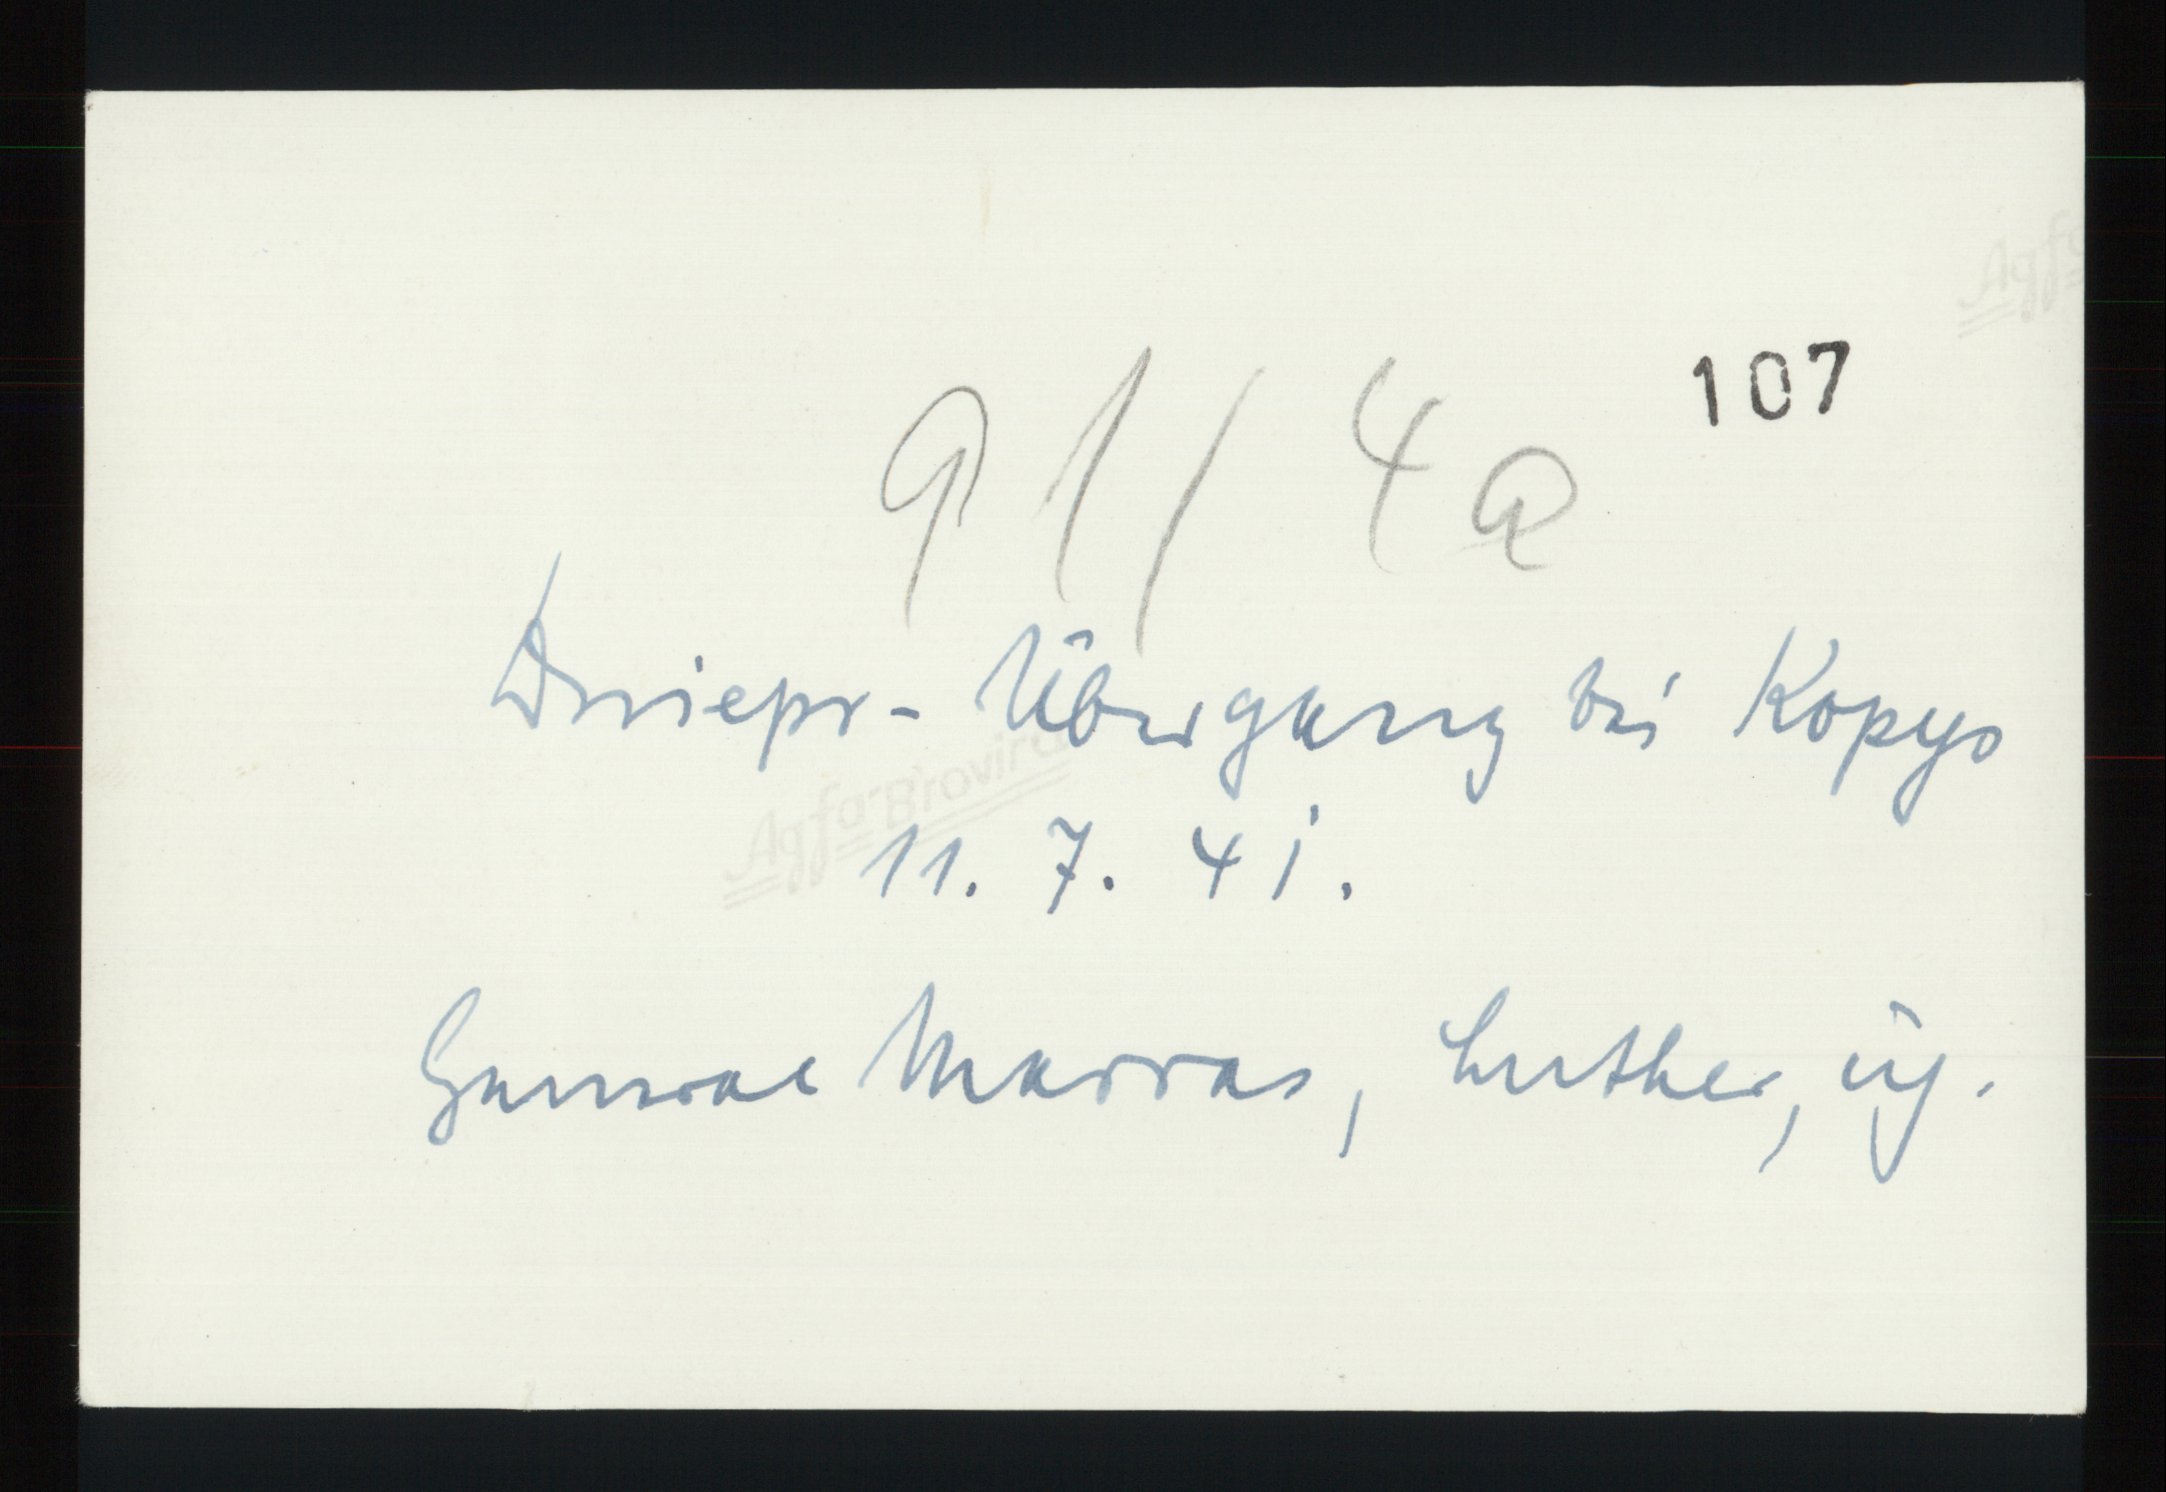 Agfa
107
91/4a
Dniepr-Übergang bei Kopys
Agfa-Brovira
11. 7. 41.
General Marras, Luther,